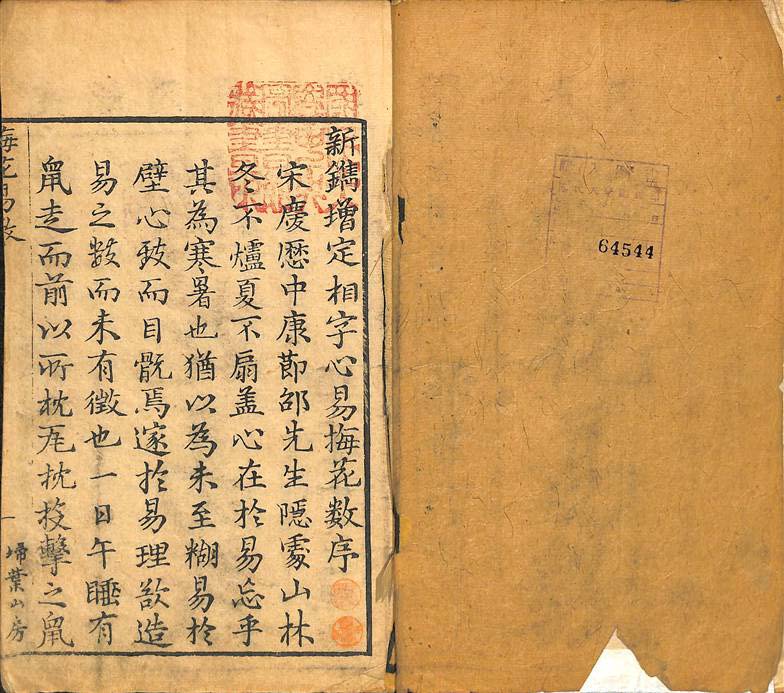 新鐫增定相字心易梅花数序
宋慶厯中康節邵先生隱䖏山林
冬不爐夏不扇盖心在於易忘乎
其為寒暑也猶以為未至糊易於
壁心致而目翫焉邃於易理欲造
易之数而未有徵也一日午睡有
鼠走而前以所枕瓦枕投擊之鼠
梅花易数
一
埽葉山房
64544